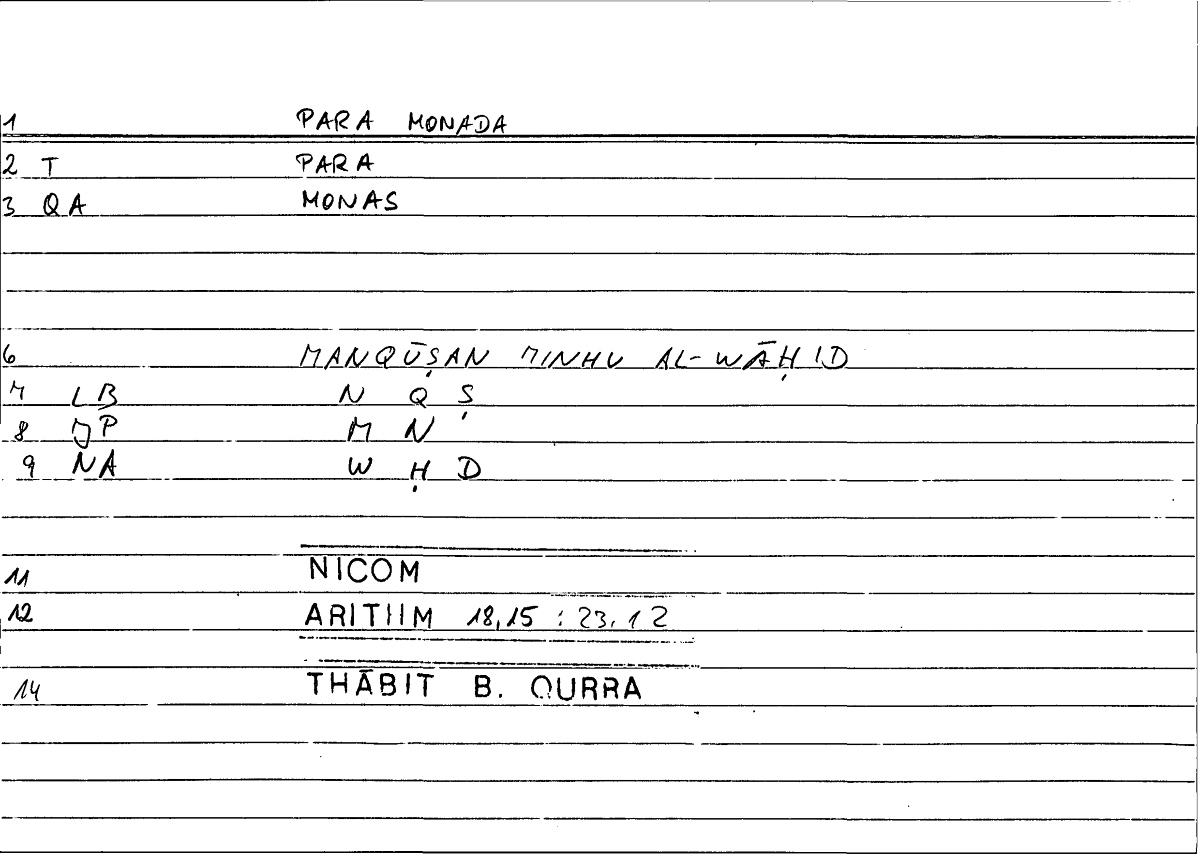 1 PARA MONADA
2 T PARA
3 QA MONAS
6 MANQŪṢAN MINHU AL-WĀḤID
7 LB N Q Ṣ
8 JP M N
9 NA W Ḥ D
11 NICOM
12 ARITHM 18,15 : 23,12
14 THĀBIT B. QURRA